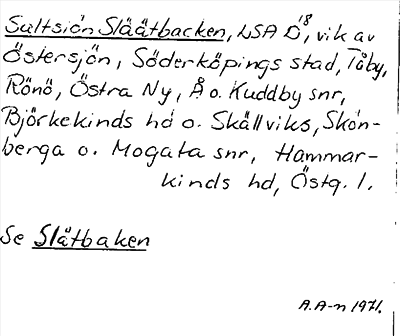 Saltsiön Slåätbacken, LSA D18, vik av
Östersjön, Söderköpings stad, Tåby,
Rönö, Östra Ny, Å o. Kuddby snr,
Björkekinds hd o. Skällviks, Skön-
berga o. Mogata snr, Hammar-
kinds hd, Östg. l.
Se Slätbaken
A.A-n 1971.